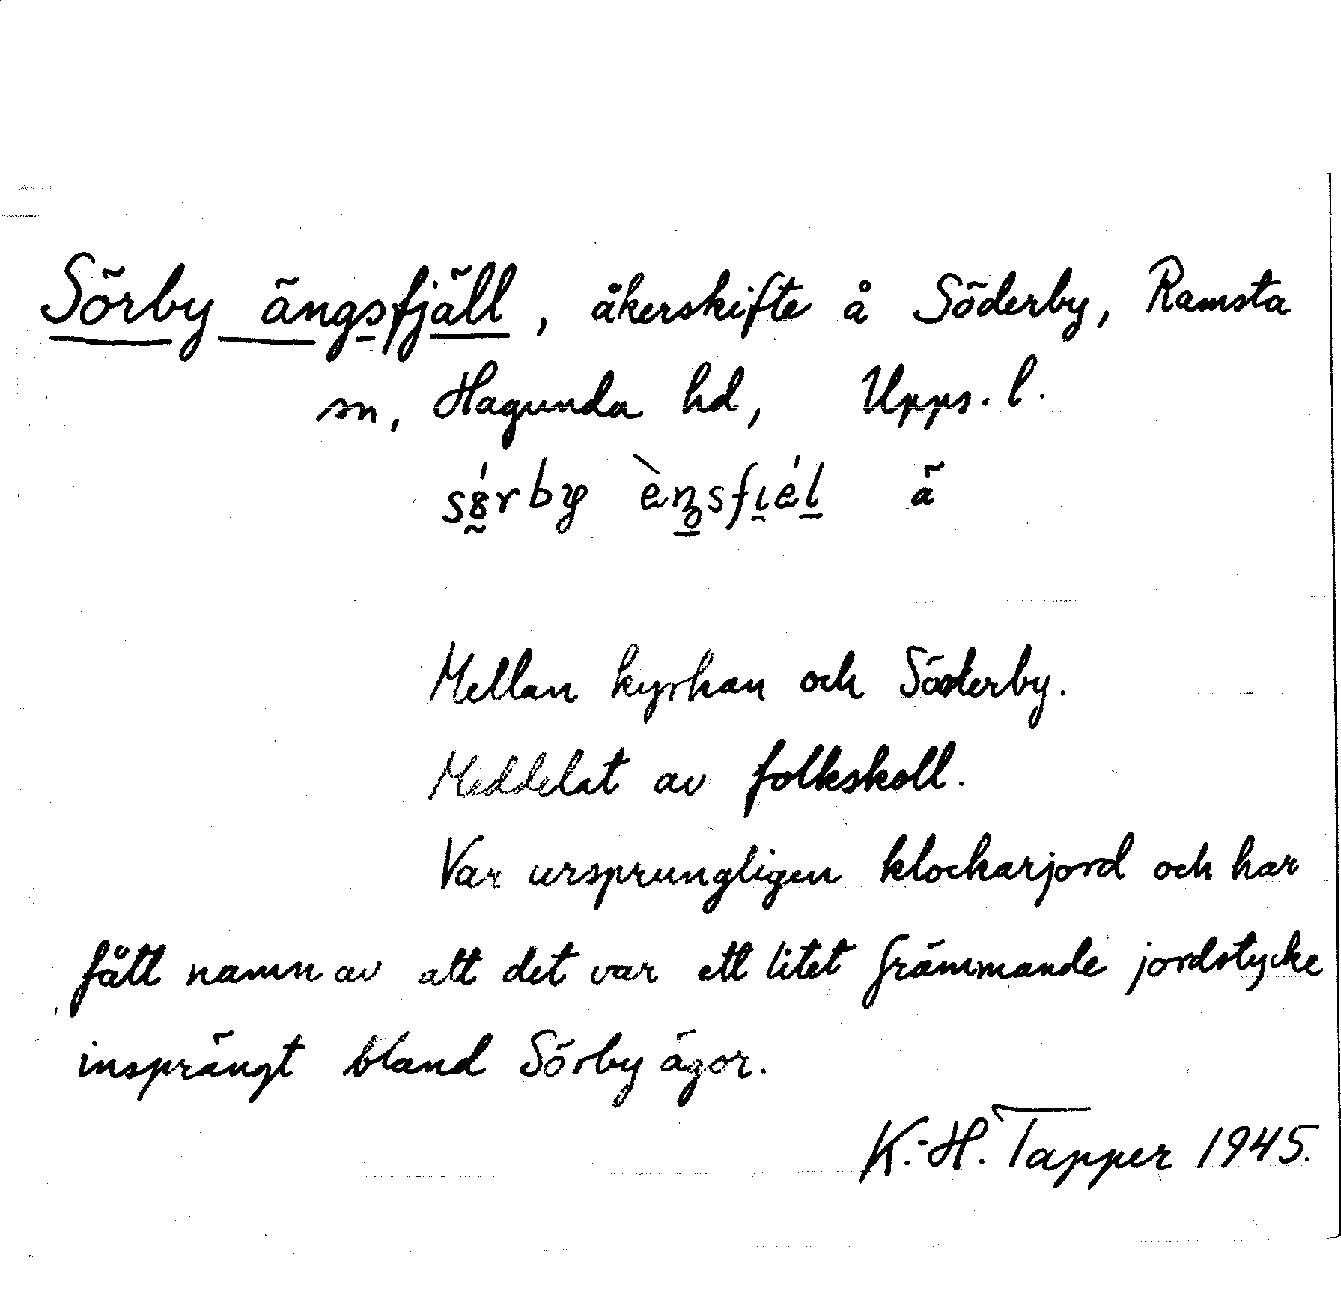 Sörby ängsfjäll, åkerskifte å Söderby, Ramsta
sn, Hagunda hd, Upps. l.
ä
Mellan kyrkan och Söderby.
Meddelat av folkskoll.
Var ursprungligen klockarjord och har
fått namn av att det var ett litet främmande jordstycke
insprängt bland Sörby ägor.
K.-H. Tapper 1945.